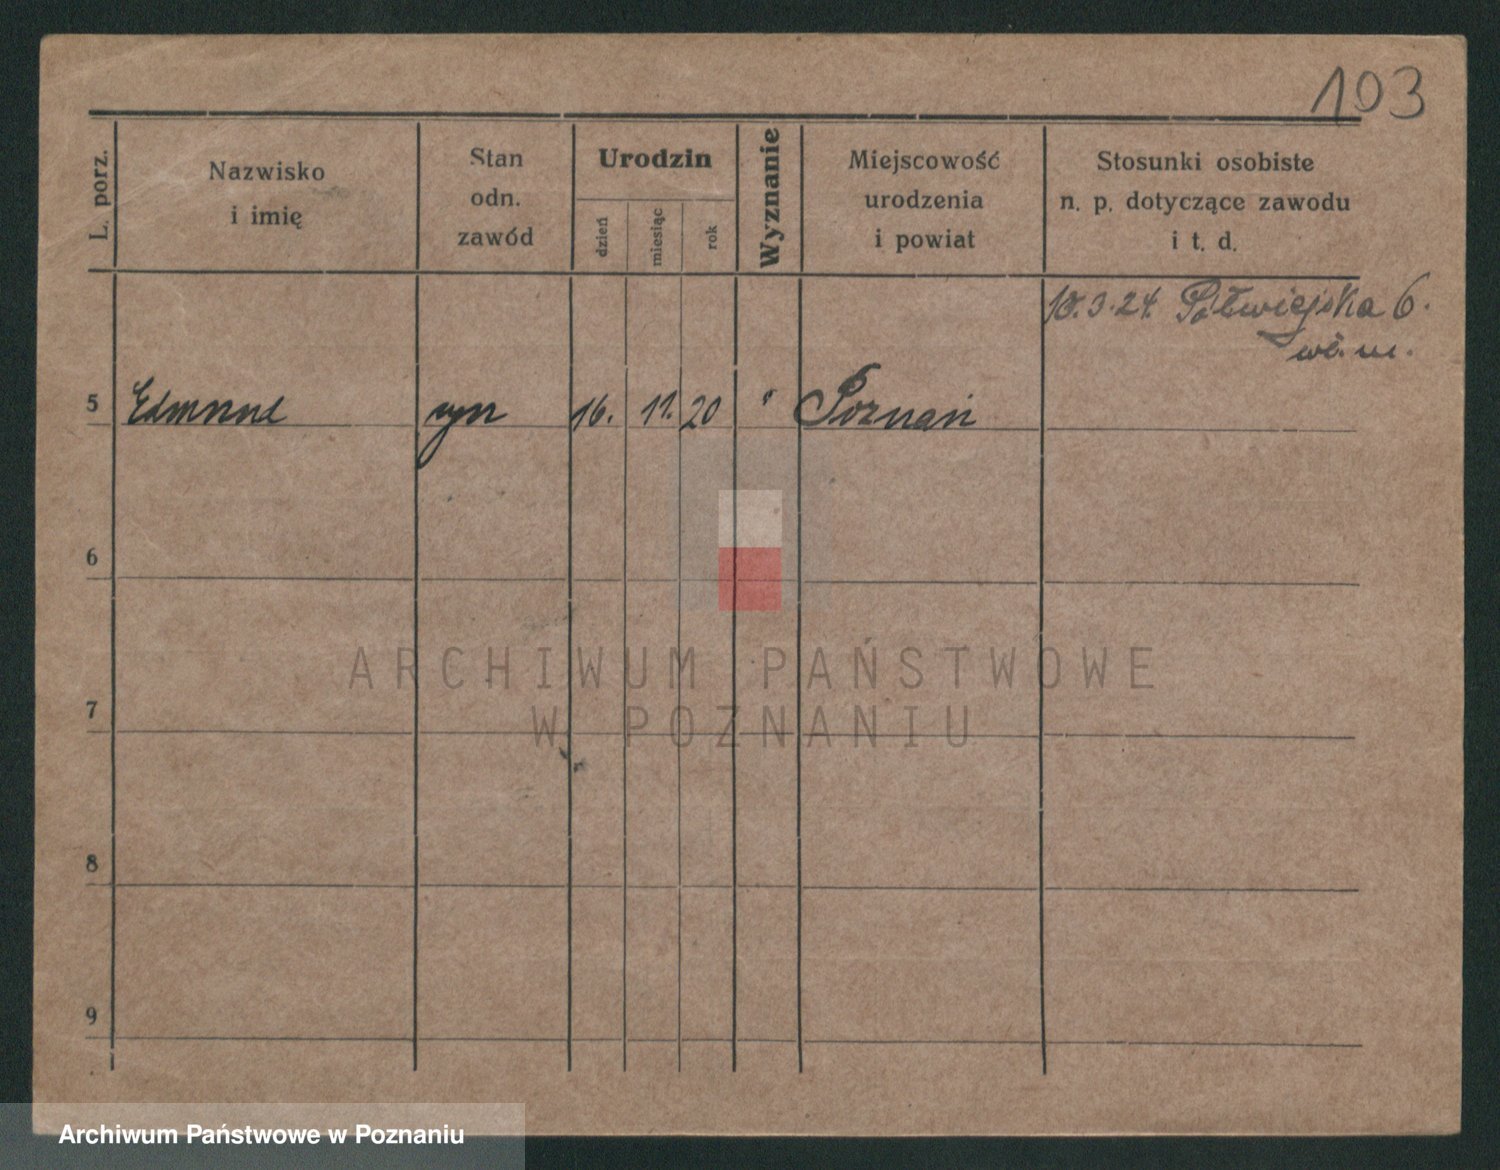 103
L. porz.
Nazwisko
i imię
Stan
odn.
zawód
Urodzin
dzień
miesiąc
rok
Wyznanie
Miejscowość
urodzenia
i powiat
Stosunki osobiste
n. p. dotyczące zawodu
i t. d.
10.3.24. Półwiejska 6.
5 Edmund syn 16. 11. 20 " Poznań
6
7
8
9
ARCHIWUM PAŃSTWOWE
W POZNANIU
Archiwum Państwowe w Poznaniu